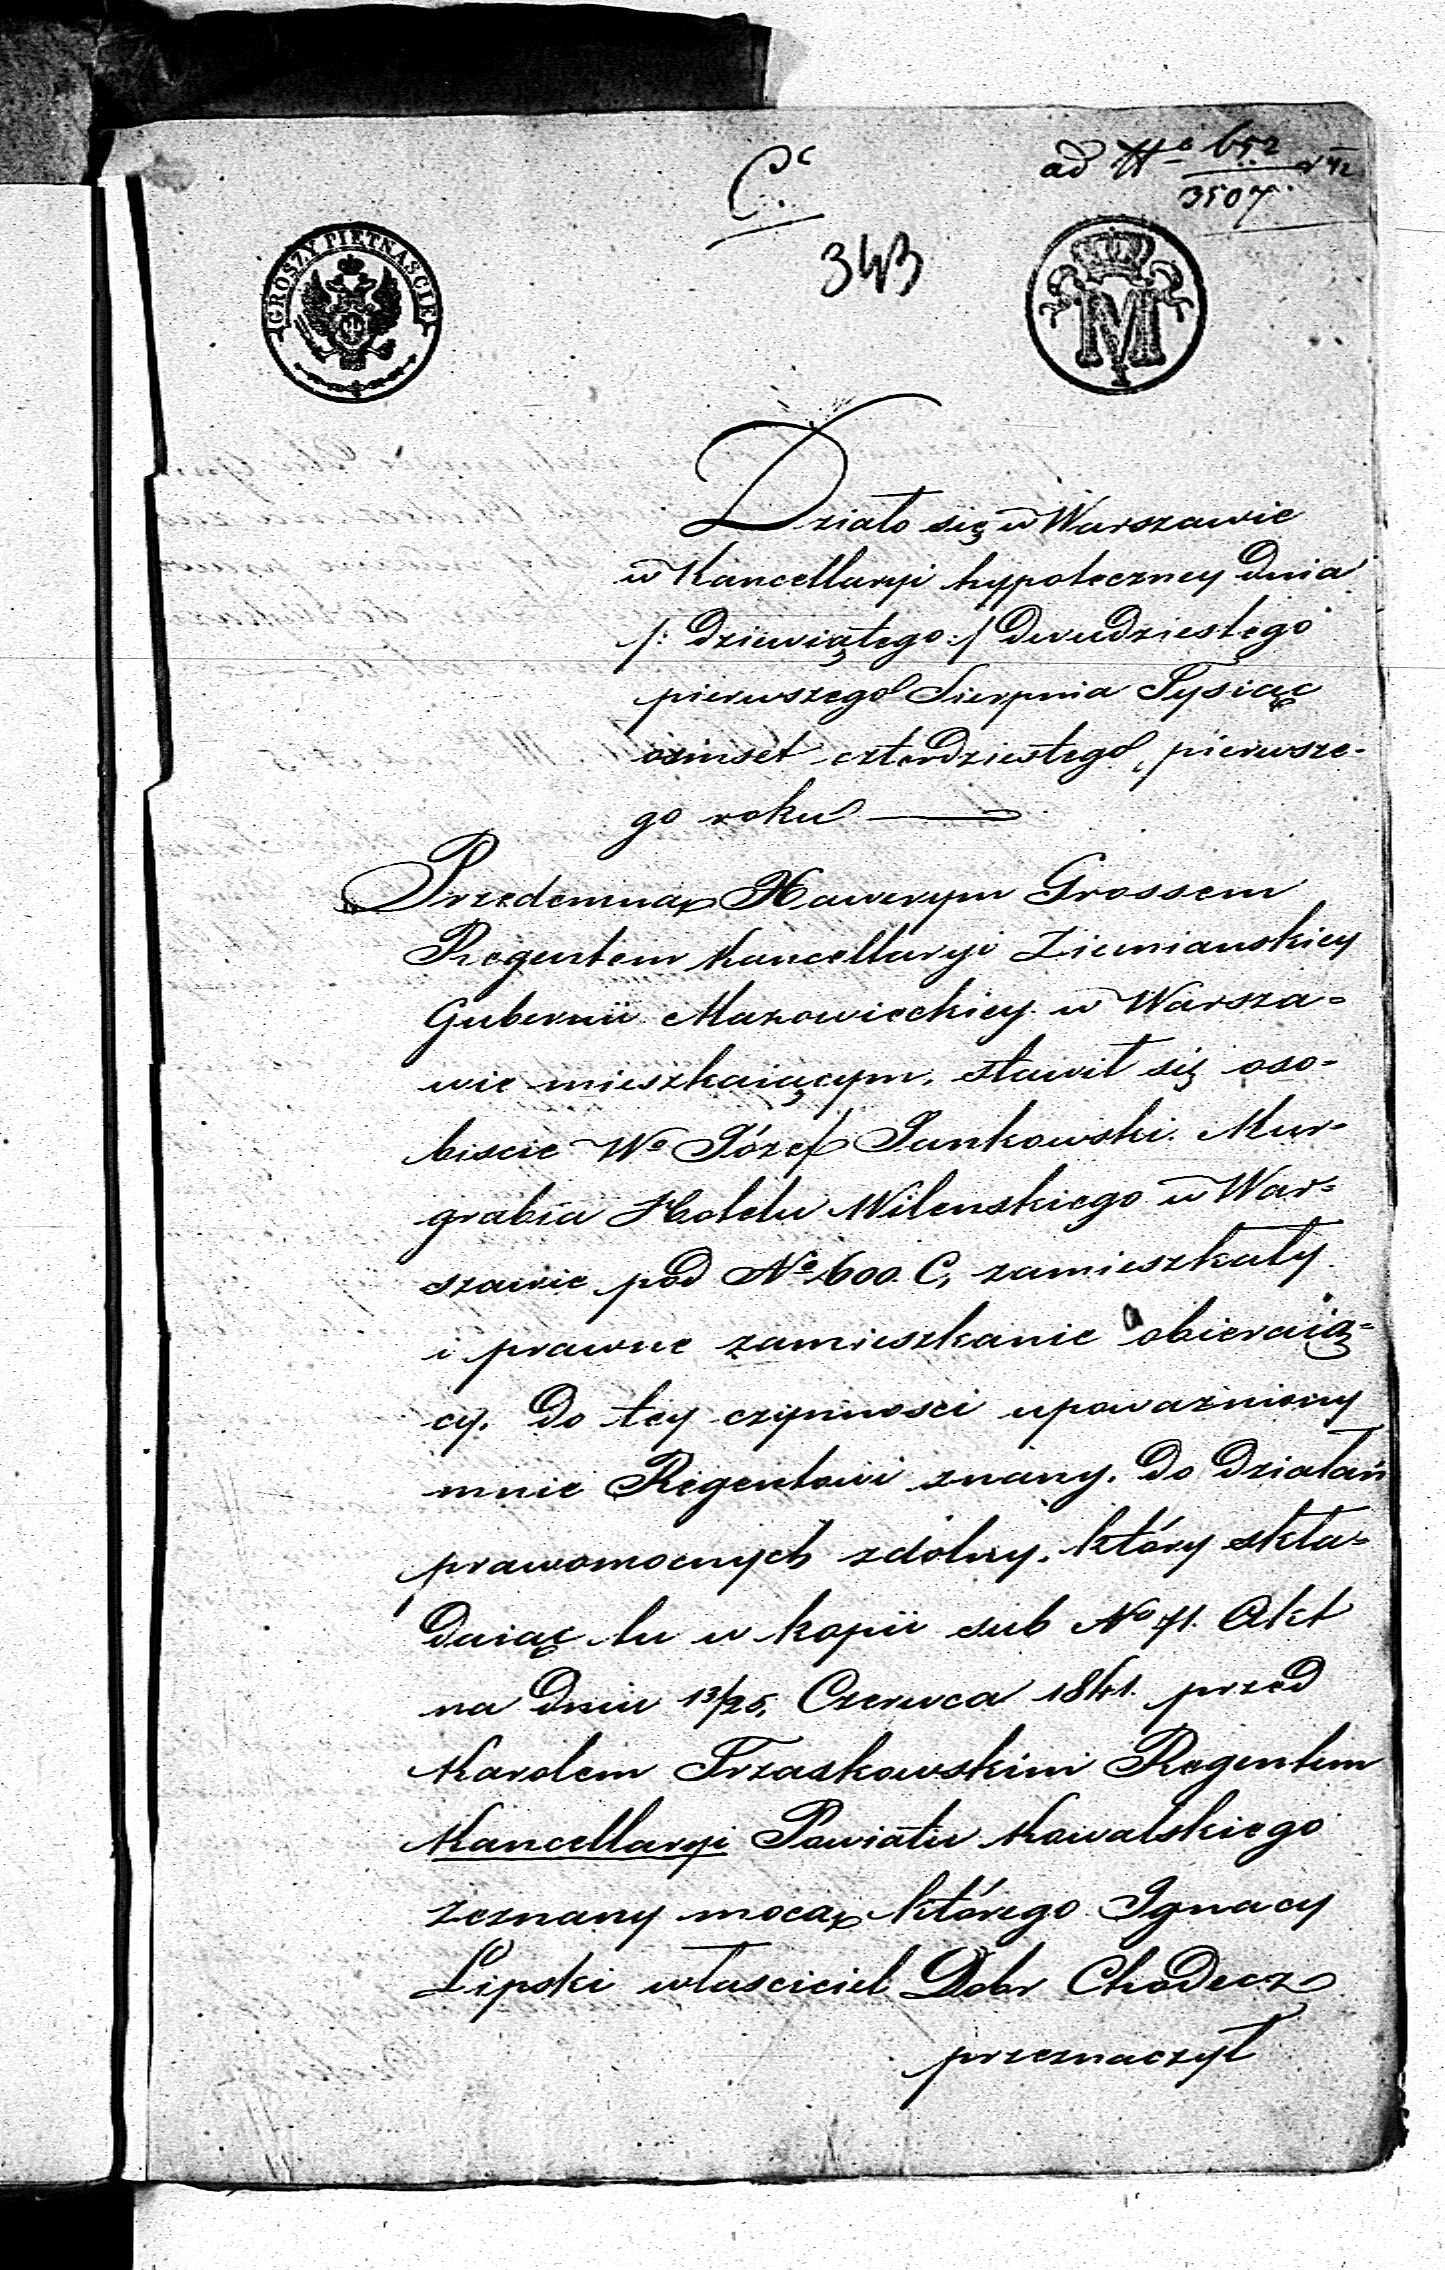 ad N° 652/3507
C.c
343
GROSZY PIĘTNAŚCIE
M
Działo się w Warszawie
w Kancellaryi hypoteczney dnia
/: dziewiątego :/ dwudziestego
pierwszego Sierpnia Tysiąc
osmset czterdziestego pierwsze-
go roku
Przedemną Xawerym Grossem
Regentem Kancellaryi Ziemianskiey
Gubernii Mazowieckiey w Warsza=
wie mieszkaiącym, stawił się oso-
biscie Wo Józef Jankowski Mur-
grabia Hotelu Wilenskiego w War=
szawie pod No 600 C, zamieszkały
i prawne zamieszkanie obieraią=
cy, do tey czynnosci upoważniony
mnie Regentowi znany, do działań
prawomocnych zdolny, który skła=
daiąc tu w kopii sub No 71. Akt
na dniu 13/25, Czerwca 1841. przed
Karolem Trzaskowskim Regentem
Kancellaryi Powiatu Kowalskiego
zeznany mocą którego Ignacy
Lipski własciciel Dobr Chodecz
przeznaczył